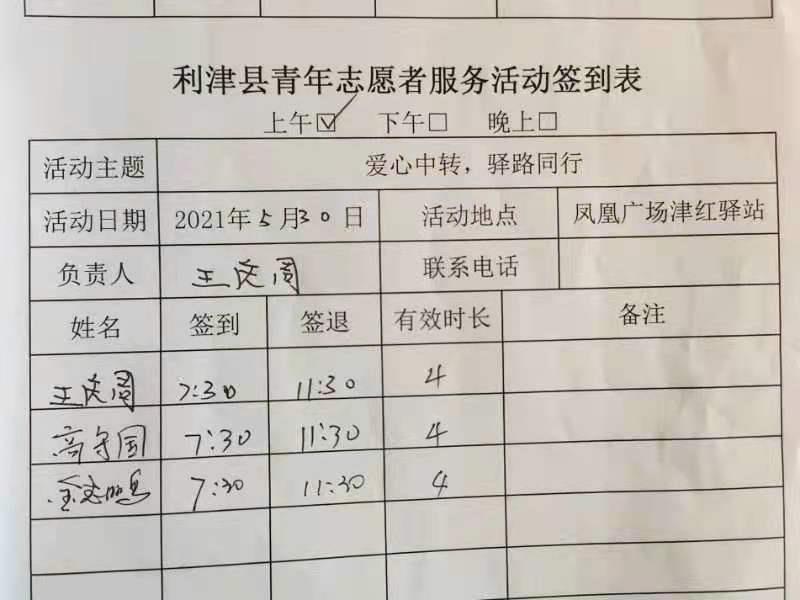 利津县青年志愿者服务活动签到表
上午☑ 下午□ 晚上□
活动主题 爱心中转，驿路同行
活动日期 2021年5月30日 活动地点 凤凰广场津红驿站
负责人 王庆周 联系电话
姓名 签到 签退 有效时长 备注
王庆周 7:30 11:30 4
高守国 7:30 11:30 4
7:30 11:30 4